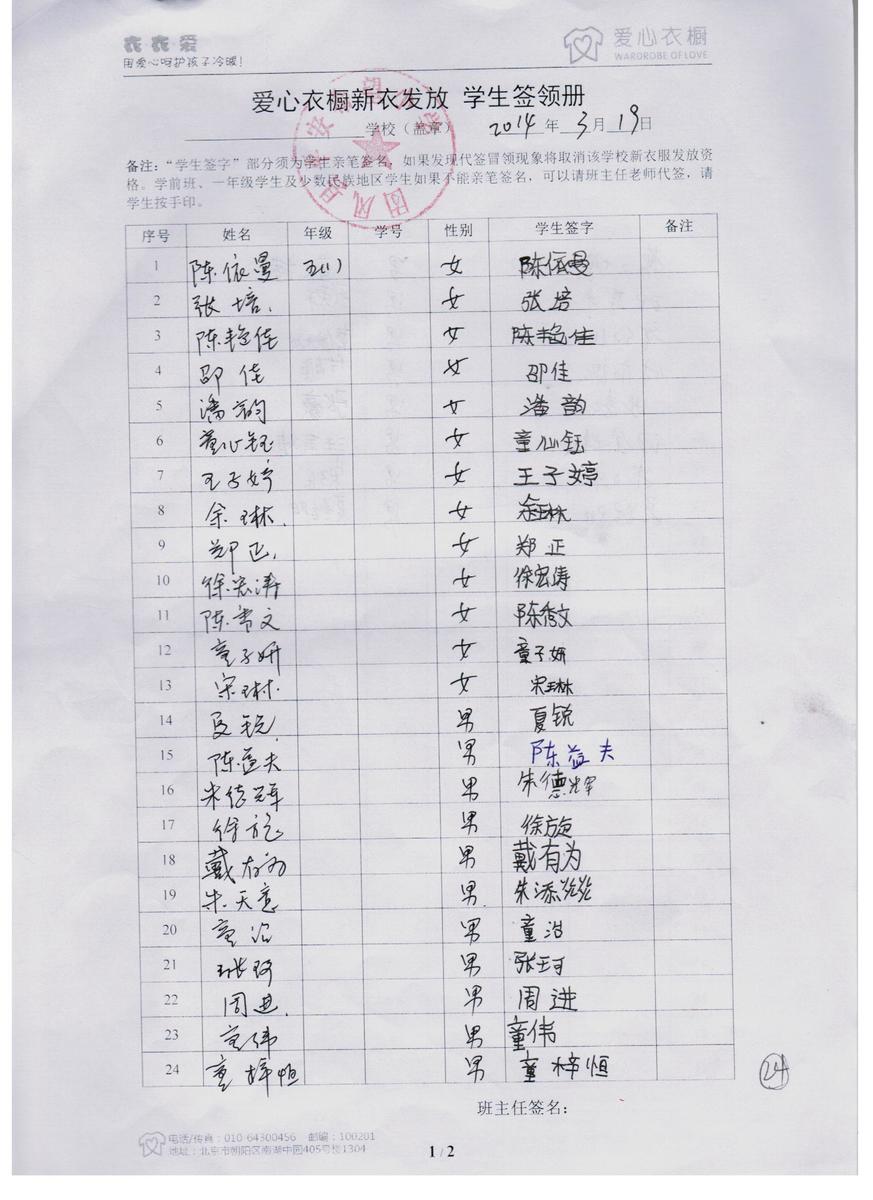 衣衣爱
用爱心呵护孩子冷暖!
爱心衣橱
WARDROBE OF LOVE
爱心衣橱新衣发放 学生签领册
学校（盖章） 2014 年 3 月 19 日
备注：“学生签字”部分须为学生亲笔签名，如果发现代签冒领现象将取消该学校新衣服发放资
格。学前班、一年级学生及少数民族地区学生如果不能亲笔签名，可以请班主任老师代签，请
学生按手印。
序号 姓名 年级 学号 性别 学生签字 备注
1 陈依曼 五(1) 女 陈依曼
2 张培. 女 张培
3 陈艳佳 女 陈艳佳
4 邵佳 女 邵佳
5 潘韵 女 潘韵
6 童心钰 女 童心钰
7 王子婷 女 王子婷
8 余琳. 女 余琳
9 郑正. 女 郑正
10 徐宏涛 女 徐宏涛
11 陈秀文 女 陈秀文
12 童子妍 女 童子妍
13 宋琳. 女 宋琳
14 夏锐. 男 夏锐
15 陈益夫 男 陈益夫
16 朱德辉 男 朱德辉
17 徐旋 男 徐旋
18 戴有为 男 戴有为
19 朱天意 男 朱添
20 童浩 男 童浩
21 张珂 男 张珂
22 周进. 男 周进
23 童伟 男 童伟
24 童梓恒 男 童梓恒
24
班主任签名：
电话/传真：010-64300456 邮编：100201
地址：北京市朝阳区南湖中园405号楼1304
1 / 2